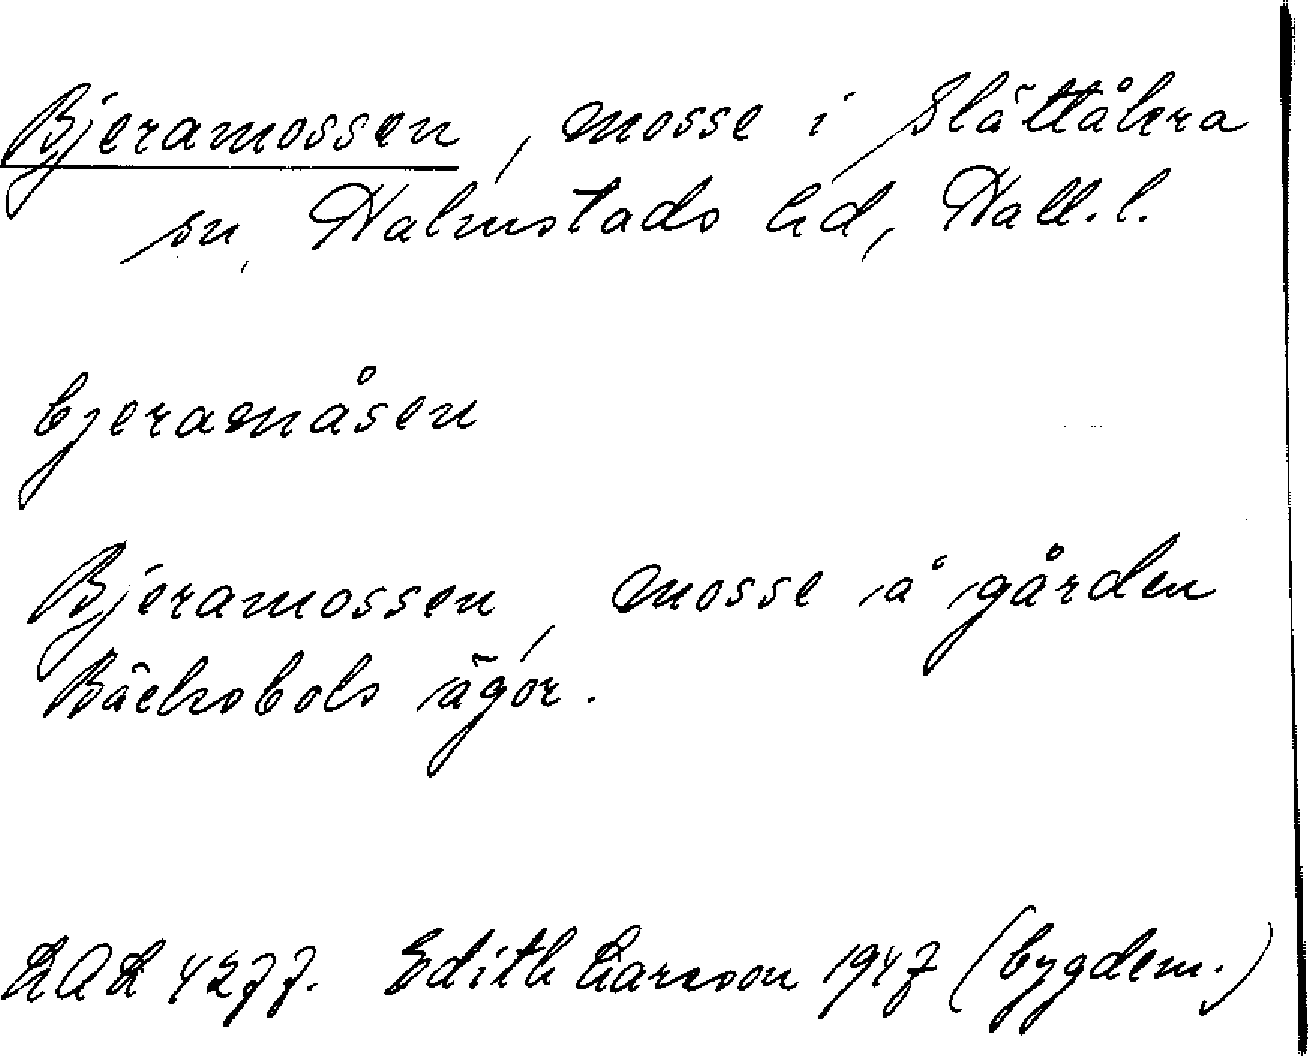 Bjeramossen, mosse i Slättåkra
sn, Halmstads hd, Hall. l.
bjeramåsen
Bjeramossen, mosse å gården
Bäcksbols ägor.
LAL 4277. Edith Larsson 1947 (bygdem.)